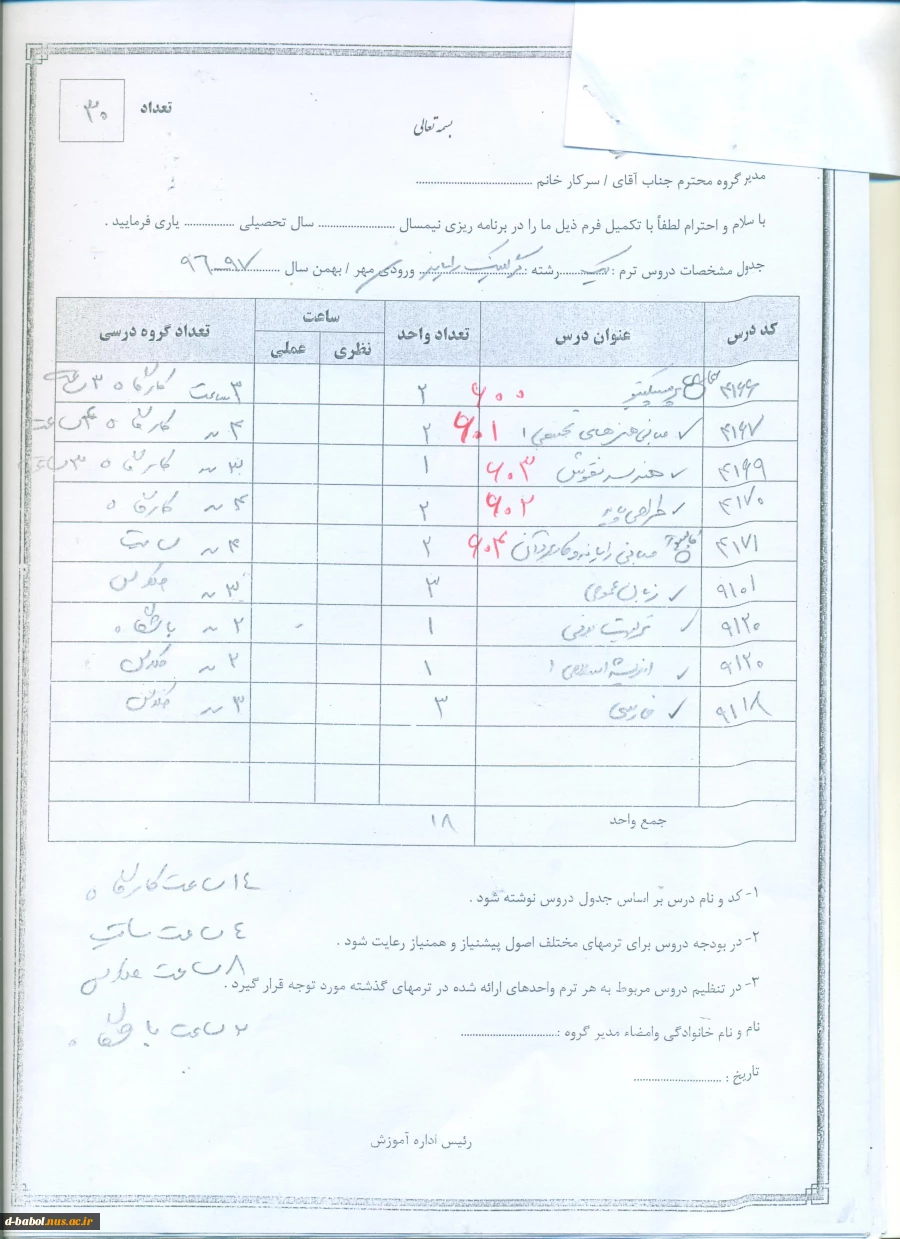 تعداد ۳۰
بسمه تعالی
مدیر گروه محترم جناب آقای / سرکار خانم ................................
با سلام و احترام لطفاً با تکمیل فرم ذیل ما را در برنامه ریزی نیمسال ..................... سال تحصیلی .............. یاری فرمایید .
جدول مشخصات دروس ترم : یک رشته : گرافیک رایانه ورودی مهر / بهمن سال ۹۶-۹۷
کد درس عنوان درس تعداد واحد ساعت تعداد گروه درسی
نظری عملی
۴۱۶۶ پرسپکتیو ۶۰۰ ۲ ۳ ساعت کارگاه ۳
۴۱۶۷ مبانی هنرهای تجسمی ۱ ۶۰۱ ۲ ۴ کارگاه ۴ ساعت
۴۱۶۹ هندسه نقوش ۶۰۳ ۱ ۳ کارگاه ۳ ساعت
۴۱۷۰ طراحی ۶۰۲ ۲ ۴ کارگاه
۴۱۷۱ مبانی رایانه و کاربرد آن ۶۰۴ ۲ ۴ سایت
۹۱۰۱ زبان عمومی ۳ ۳ کلاس
۹۱۲۰ تربیت بدنی ۱ ۲ باشگاه
۹۱۲۰ اندیشه اسلامی ۱ ۱ ۲ کلاس
۹۱۱۸ فارسی ۳ ۳ کلاس
جمع واحد ۱۸
۱۴ ساعت کارگاه
۱- کد و نام درس بر اساس جدول دروس نوشته شود .
۴ ساعت سایت
۲- در بودجه دروس برای ترمهای مختلف اصول پیشنیاز و همنیاز رعایت شود .
۸ ساعت کلاس
۳- در تنظیم دروس مربوط به هر ترم واحدهای ارائه شده در ترمهای گذشته مورد توجه قرار گیرد .
۲ ساعت باشگاه
نام و نام خانوادگی وامضاء مدیر گروه :...........................
تاریخ : .........................
رئیس اداره آموزش
d-babol.nus.ac.ir